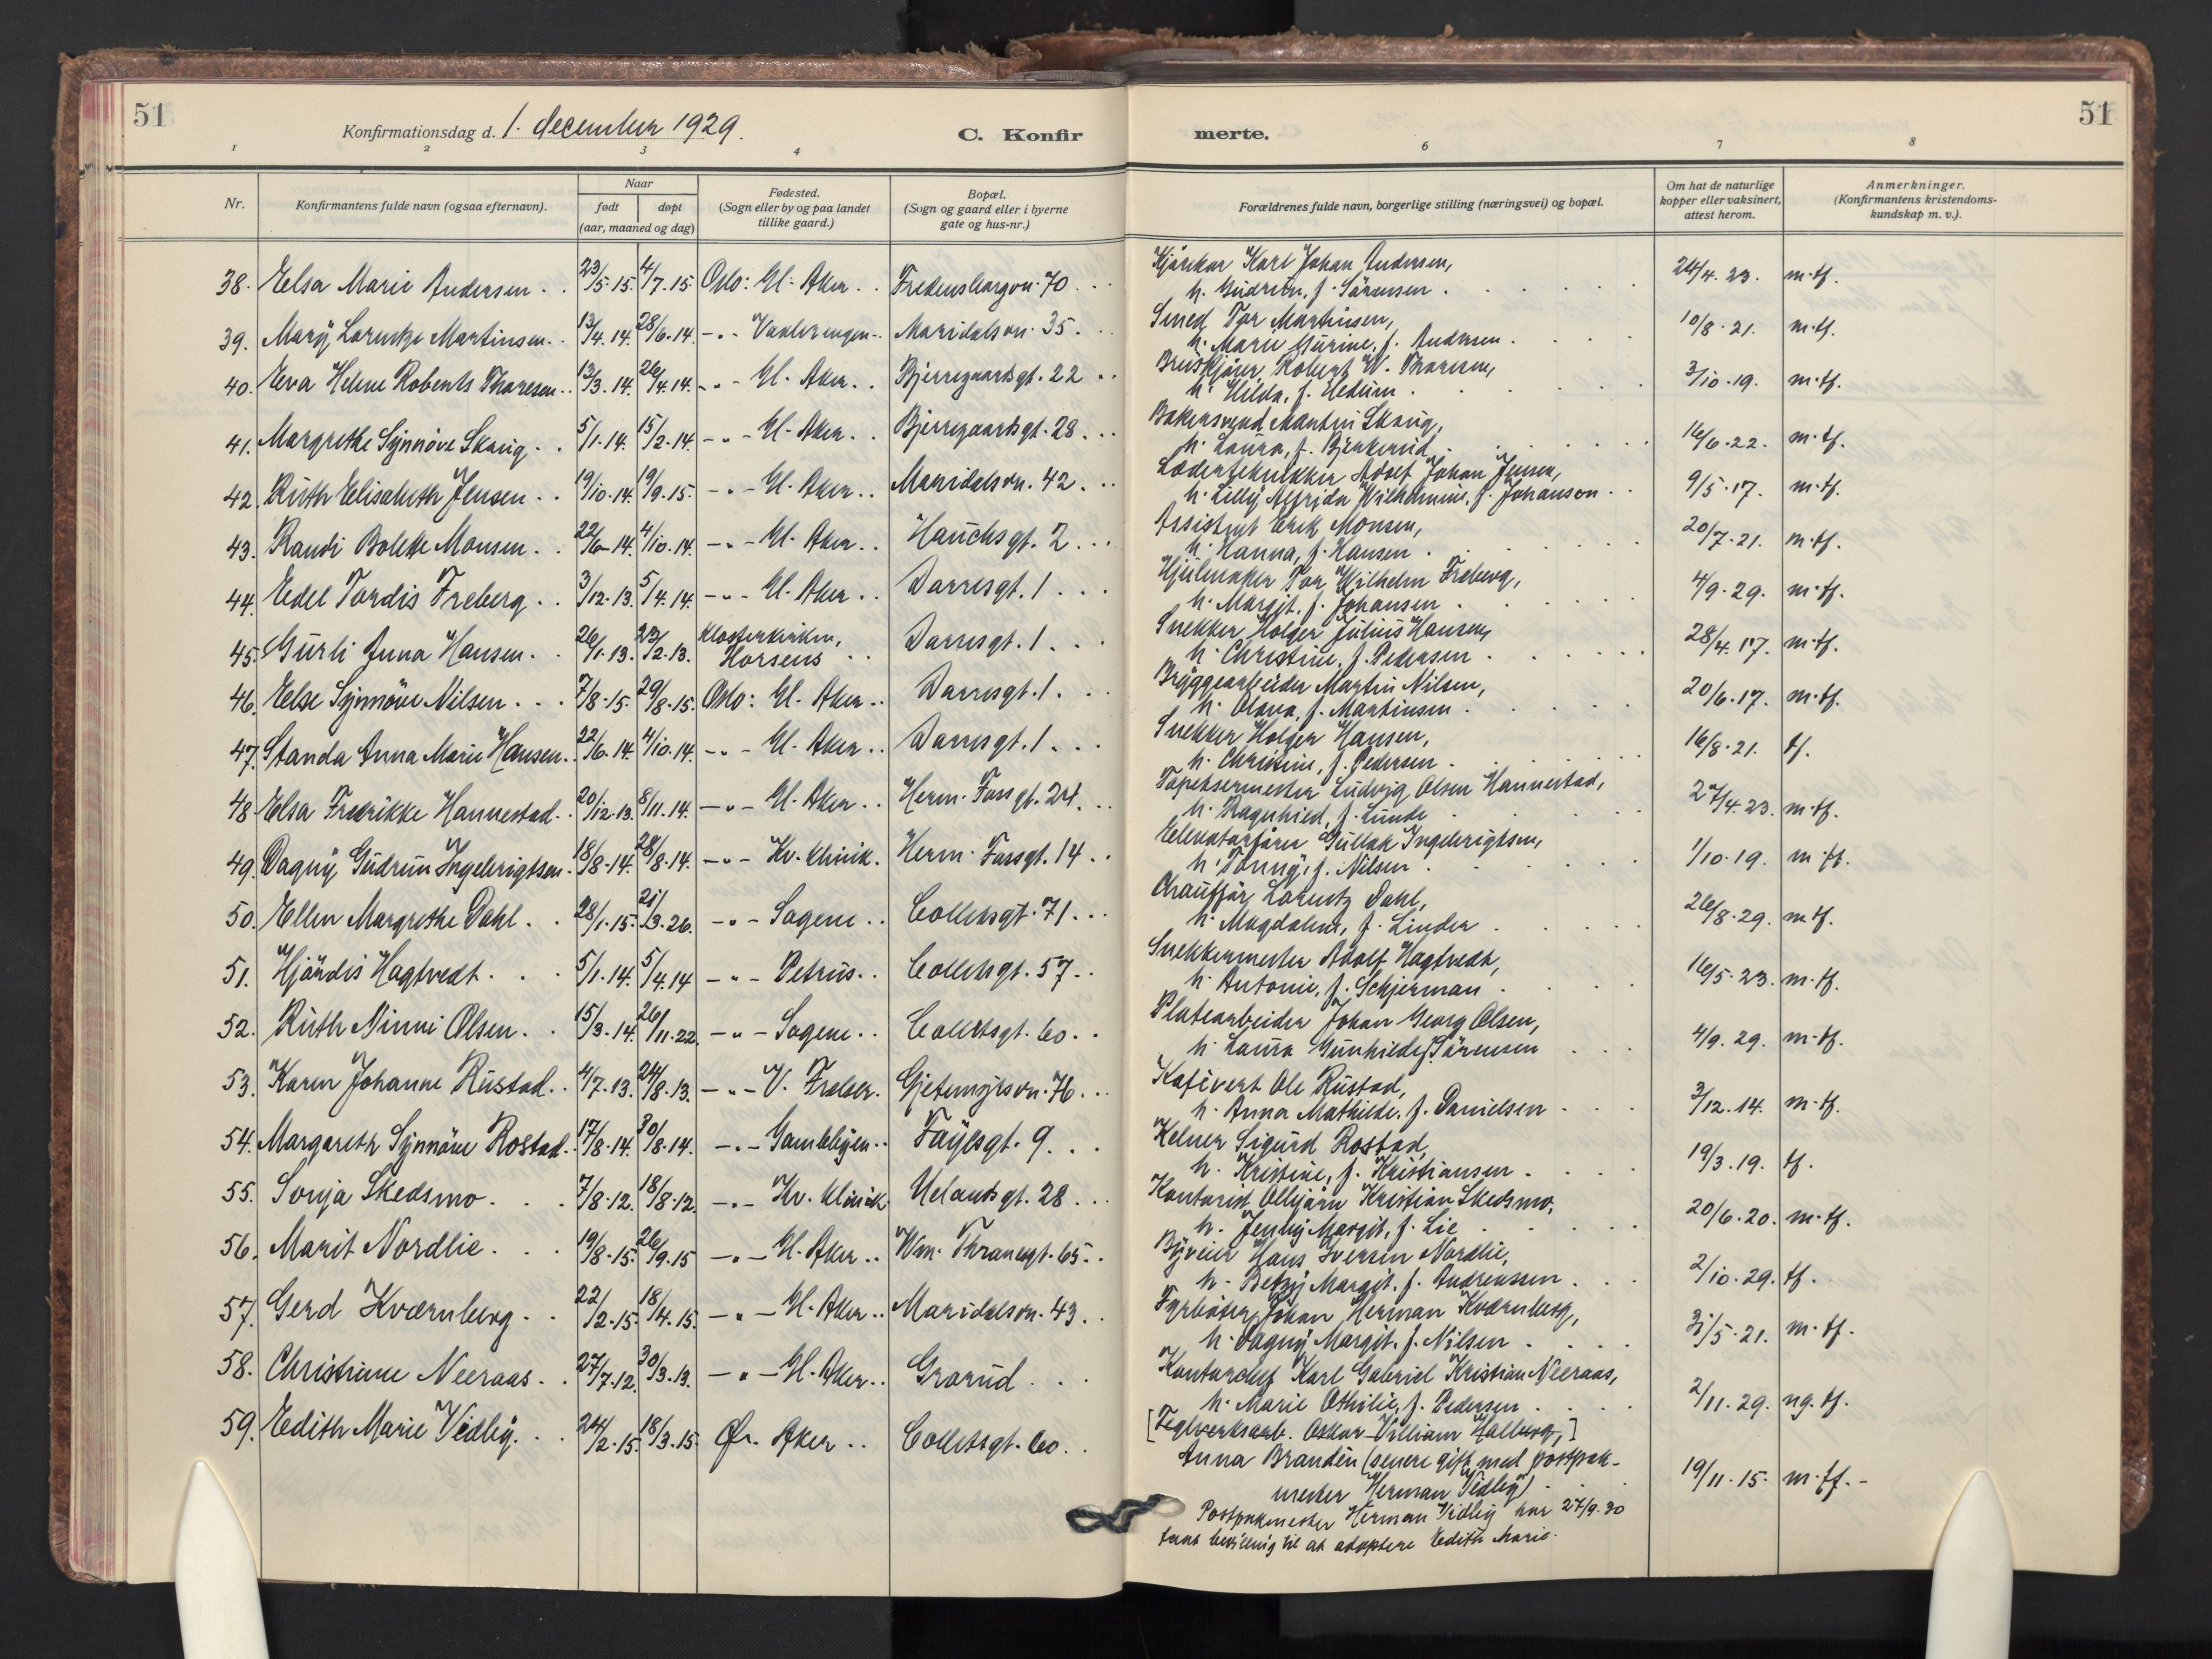 51
Konfirmationsdag d. 1. december 1929.
C. Konfir
merte.
51
1 2 3 4 6 7 8
Nr.
Konfirmantens fulde navn (ogsaa efternavn).
Naar
født døpt
(aar, maaned og dag)
Fødested.
(Sogn eller by og paa landet
tillike gaard.)
Bopæl.
(Sogn og gaard eller i byerne
gate og hus-nr.)
Forældrenes fulde navn, borgerlige stilling (næringsvei) og bopæl.
Om hat de naturlige
kopper eller vaksinert,
attest herom.
Anmerkninger.
(Konfirmantens kristendoms-
kundskap m. v.).
38. Elsa Marie Andersen. 23/5.15. 4/7.15. Oslo: Gl. Aker. Fredensborgvn. 70. Kjørekar Karl Johan Andersen,
h. Gudrun, f. Sørensen. 24/4.23. m.tf.
39. Mary Lorentze Martinsen. 13/4.14. 28/6.14. -"- Vaalerengen. Maridalsvn. 35. Smed Tor Martinsen,
h. Marie Gurine, f. Andersen. 10/8.21. m.tf.
40. Eva Helene Roberts Thoresen. 13/3.14. 26/4.14. -"- Gl. Aker. Bjerregaardsgt. 22. Robert W. Thoresen,
h. Hilda, f. Hedum. 3/10.19. m.tf.
41. Margrethe Synnöve Skaug. 5/1.14. 15/2.14. -"- Gl. Aker. Bjerregaardsgt. 28. Bakersvend Martin Skaug,
h. Laura, f. Bjerkerud. 16/6.22. m.tf.
42. Ruth Elisabeth Jensen. 19/10.14. 19/9.15. -"- Gl. Aker. Maridalsvn. 42. Lædertekniker Adolf Johan Jensen,
h. Lilly Alfrida Wilhelmine, f. Johanson. 9/5.17. m.tf.
43. Randi Bolette Monsen. 22/6.14. 4/10.14. -"- Gl. Aker. Hauchsgt. 2. Assistent Erik Monsen,
h. Hanna, f. Hansen. 20/7.21. m.tf.
44. Edel Tordis Freberg. 3/12.13. 5/4.14. -"- Gl. Aker. Darresgt. 1. Hjulmaker Tor Wilhelm Freberg,
h. Margit, f. Johansen. 4/9.29. m.tf.
45. Gurli Anna Hansen. 26/1.13. 23/2.13. Klosterkirken,
Horsens Darresgt. 1. Snekker Holger Julius Hansen,
h. Christine, f. Pedersen. 28/4.17. m.tf.
46. Else Synnöve Nilsen. 7/8.15. 29/8.15. Oslo: Gl. Aker. Darresgt. 1. Bryggearbeider Martin Nilsen,
h. Olava, f. Martinsen. 20/6.17. m.tf.
47. Standa Anna Marie Hansen. 22/6.14. 4/10.14. -"- Gl. Aker. Darresgt. 1. Snekker Holger Hansen,
h. Christine, f. Pedersen. 16/8.21. tf.
48. Elsa Fredrikke Hannestad. 20/12.13. 8/11.14. -"- Gl. Aker. Herm. Fossgt. 24. Tapetsermester Ludvig Olsen Hannestad,
h. Ragnhild, f. Lunde. 27/4.23. m.tf.
49. Dagny Gudrun Ingebrigtsen. 18/8.14. 28/8.14. -"- Kv. klinik. Herm. Fossgt. 14. Elevatorfører Gullak Ingebrigtsen,
h. Tonny, f. Nilsen. 1/10.19. m.tf.
50. Ellen Margrethe Dahl. 28/1.15. 21/3.26. -"- Sagene. Colletsgt. 71. Chauffør Lorentz Dahl,
h. Magdalene, f. Linder. 26/8.29. m.tf.
51. Hjördis Hagtvedt. 5/1.14. 5/4.14 -"- Petrus. Colletsgt. 57. Snekkermester Adolf Hagtvedt,
h. Antonie, f. Schjerman. 16/5.23. m.tf.
52. Ruth Ninni Olsen. 15/3.14. 26/11.22. -"- Sagene. Colletsgt. 60. Platearbeider Johan Georg Olsen,
h. Laura Gunhilde f. Sørensen 4/9.29. m.tf.
53. Karen Johanne Rustad. 4/7.13. 24/8.13. -"- V. Frelser. Gjetemyrsvn. 76. Kafévert Ole Rustad,
h. Anna Mathilde, f. Danielsen. 3/12.14. m.tf.
54. Margareth Synnöve Rostad. 17/8.14. 30/8.14. -"- Gamlebyen. Fayesgt. 9. Kelner Sigurd Rostad,
h. Kristine, f. Kristiansen. 19/3.19. tf.
55. Sonja Skedsmo. 7/8.12. 18/8.12. -"- Kv. klinik Uelandsgt. 28. Kontorist Olbjørn Kristian Skedsmo,
h. Jenny Margit, f. Lie. 20/6.20. m.tf.
56. Marit Nordlie. 19/8.15. 26/9.15 -"- Gl. Aker. Wm. Thranesgt. 65. Byveier Hans Iversen Nordlie,
h. Betzy Margit, f. Andreassen. 2/10.29. tf.
57. Gerd Kværnberg. 22/2.15. 18/4.15. -"- Gl. Aker. Maridalsvn. 43. Fyrbøter Johan Herman Kværnberg,
h. Dagny Margit, f. Nilsen. 31/5.21. m.tf.
58. Christiane Neeraas. 27/7.12. 30/3.13. -"- Gl. Aker. Grorud. Kontorchef Karl Gabriel Kristian Neeraas,
h. Marie Othilie, f. Pedersen. 2/11.29. ng.tf.
59. Edith Marie Vidley. 24/2.15. 18/3.15. Øs. Aker. Colletsgt. 60. [Teglverksarb. Oskar William Halberg,]
Anna Brandén (senere gift med postpak-
mester Herman Vidley). 19/11.15. m.tf.
Postpakmester Herman Vidley har 27/9.30
faat bevilling til at adoptere Edith Marie.